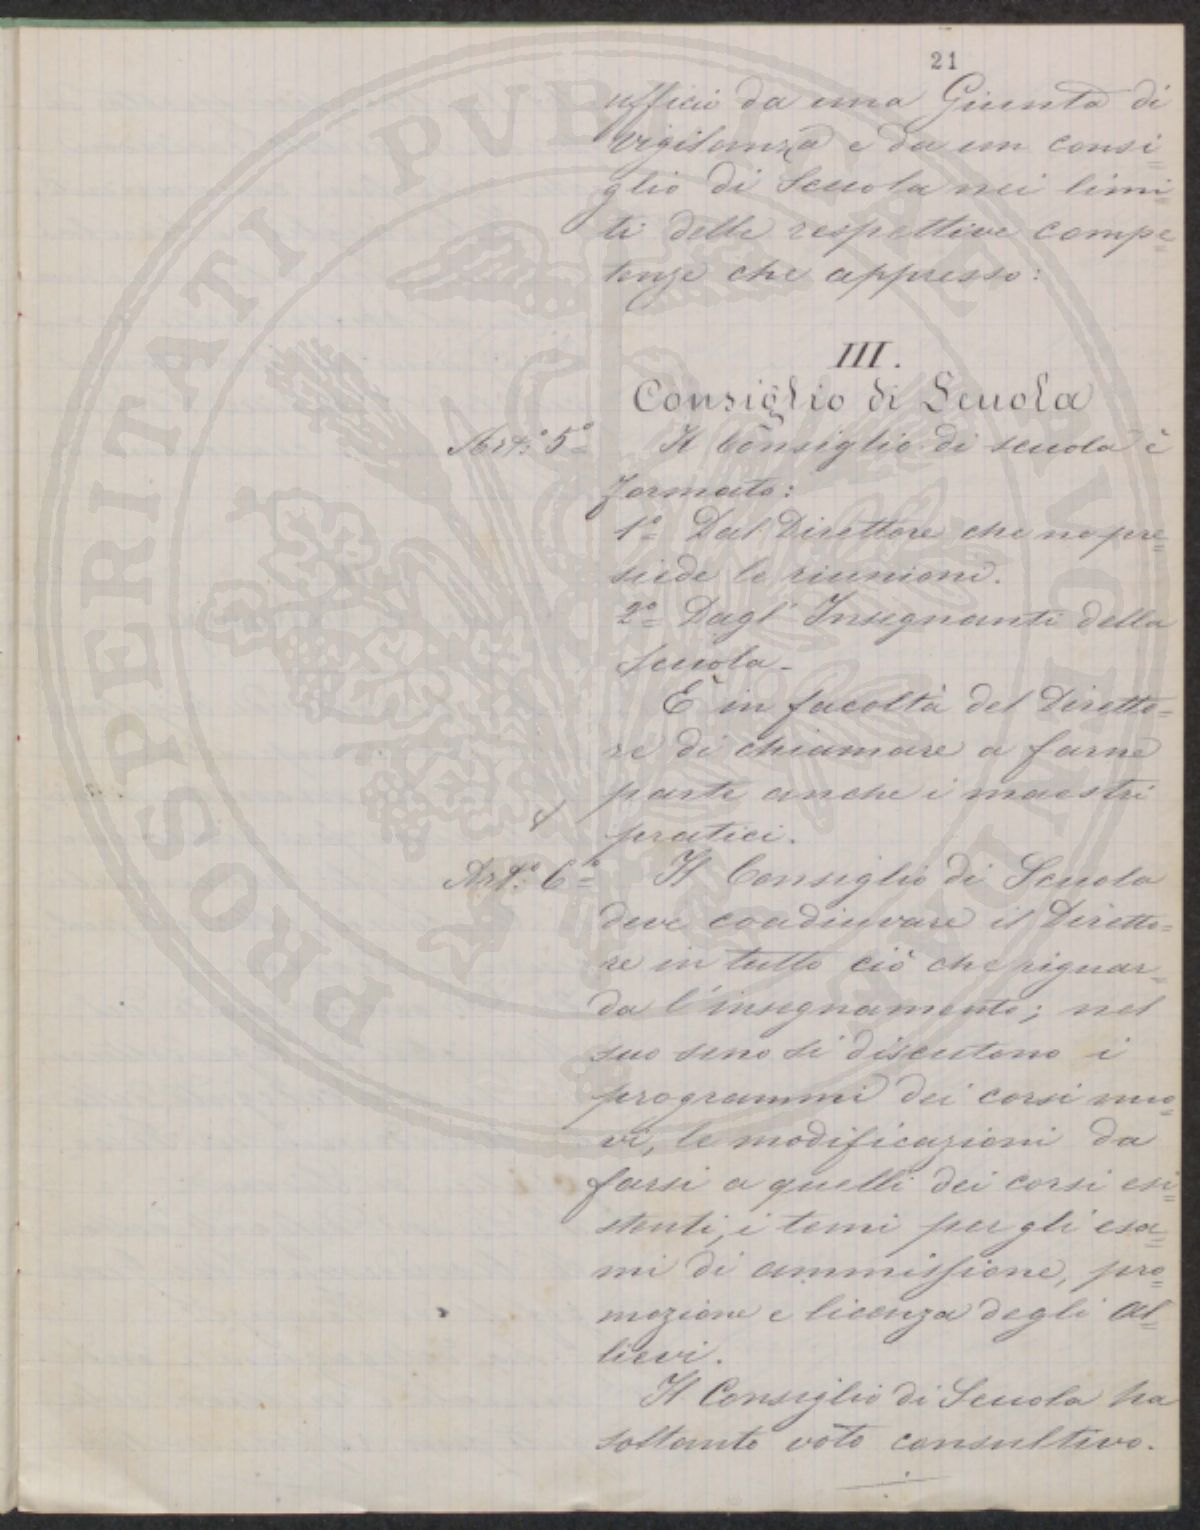 21
ufficio da una Giunta di
vigilanza e da un consi=
glio di Scuola nei limi=
ti delle respettive compe=
tenze che appresso:
III.
Consiglio di Scuola
Art.° 5° Il Consiglio di scuola è
formato:
1° Dal Direttore che ne pre=
siede le riunioni.
2° Dagl' Insegnanti della
scuola.
È in facoltà del Diretto=
re di chiamare a farne
parte anche i maestri
pratici.
Art.° 6° Il Consiglio di Scuola
deve coadiuvare il Diretto=
re in tutto ciò che riguar=
da l'insegnamento; nel
suo seno si discutono i
programmi dei corsi nuo=
vi, le modificazioni da
farsi a quelli dei corsi esi=
stenti, i temi per gli esa=
mi di ammissione, pro=
mozione e licenza degli al=
lievi.
Il Consiglio di Scuola ha
soltanto voto consultivo.
PROSPERITATI PVBLICAE